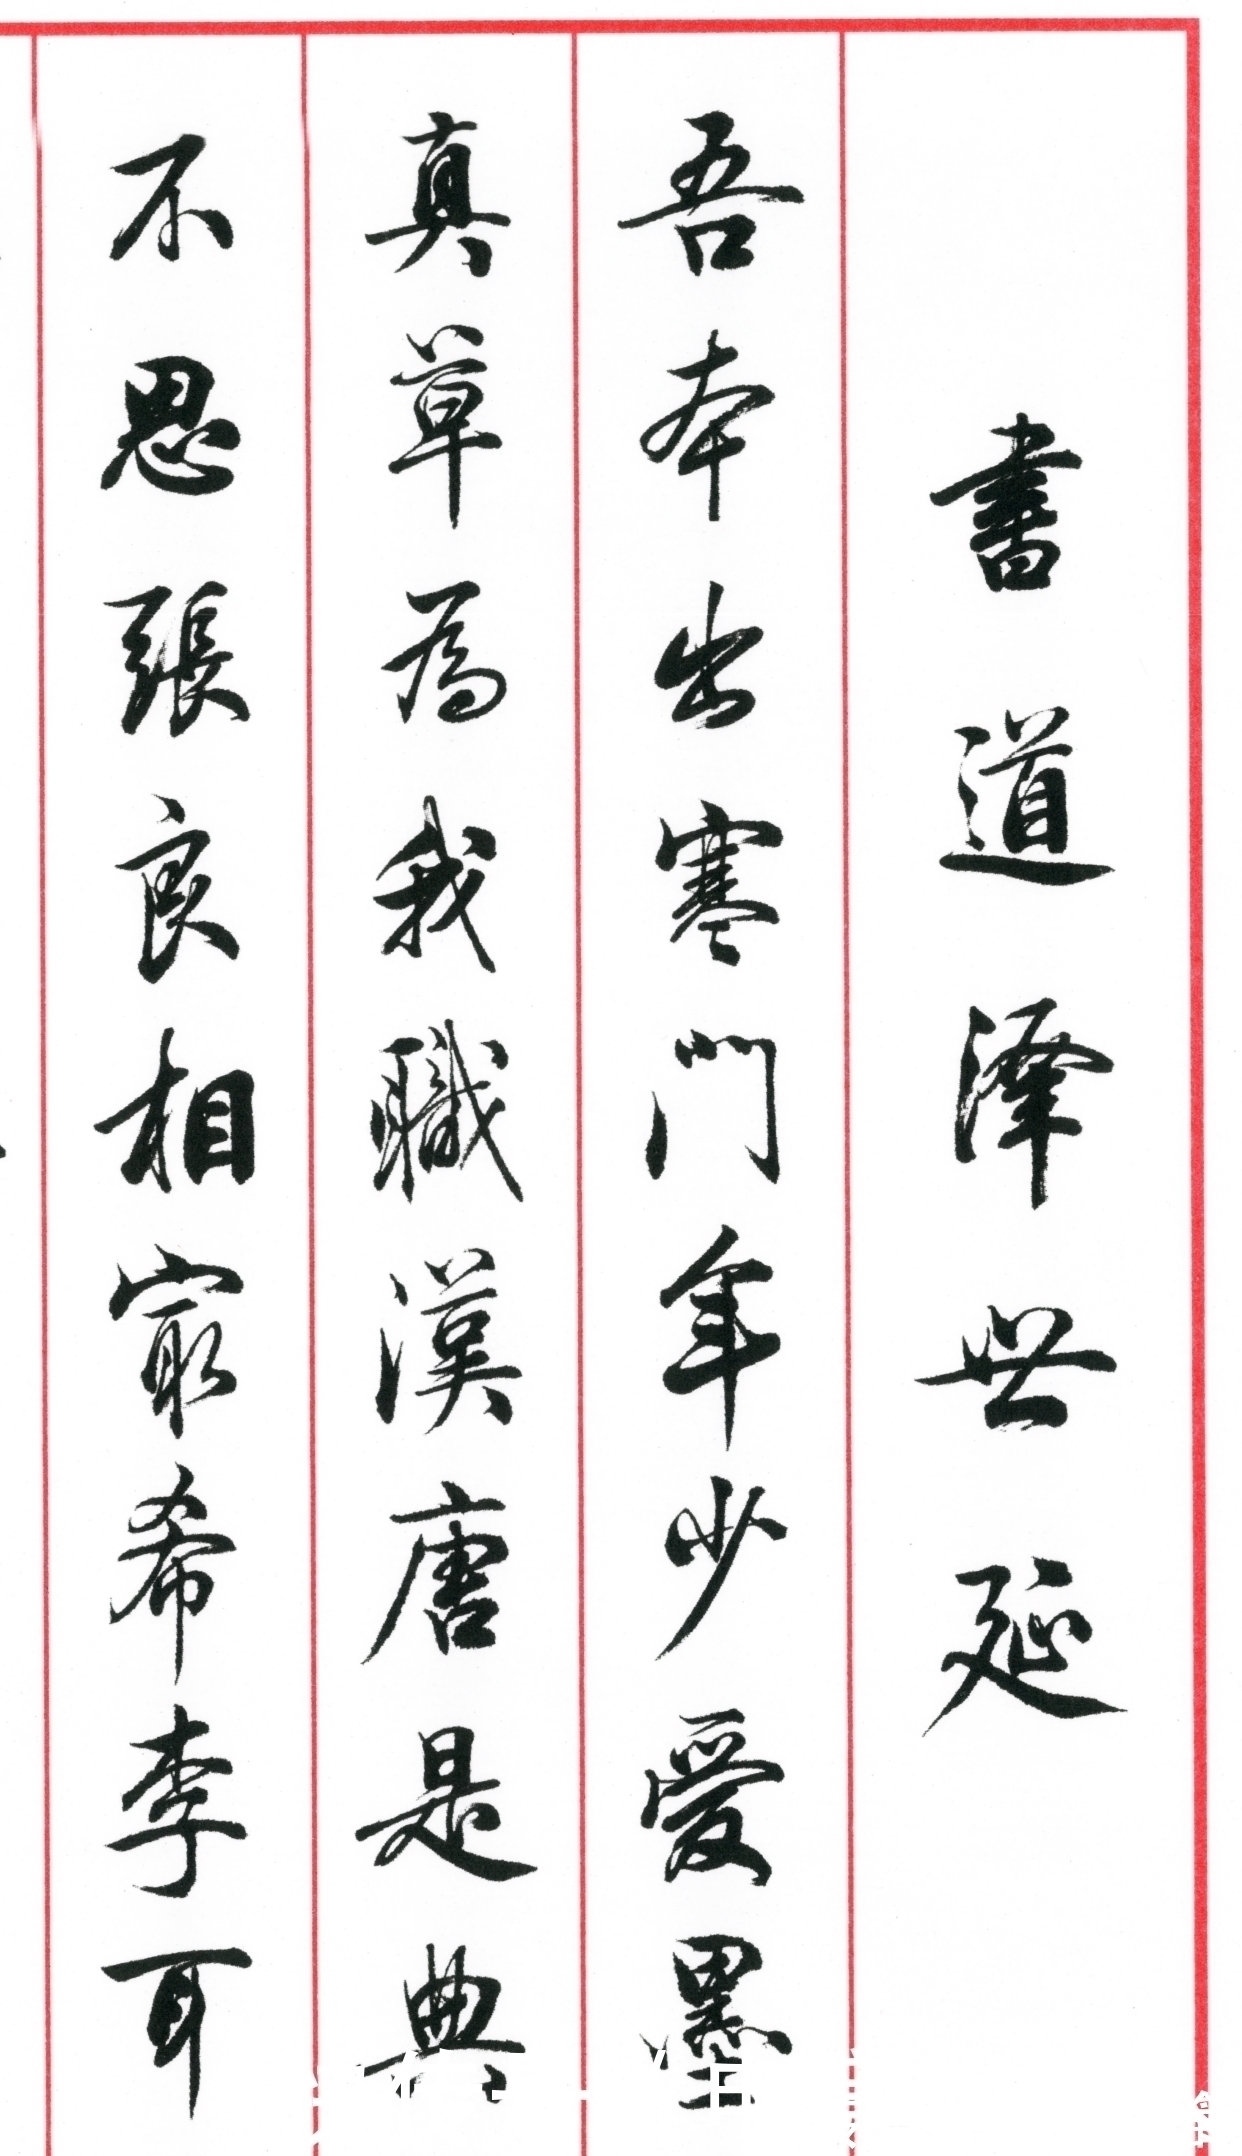 書道澤世延
吾本出寒門年少愛墨
真草為我職漢唐是典
不思張良相寂希李耳